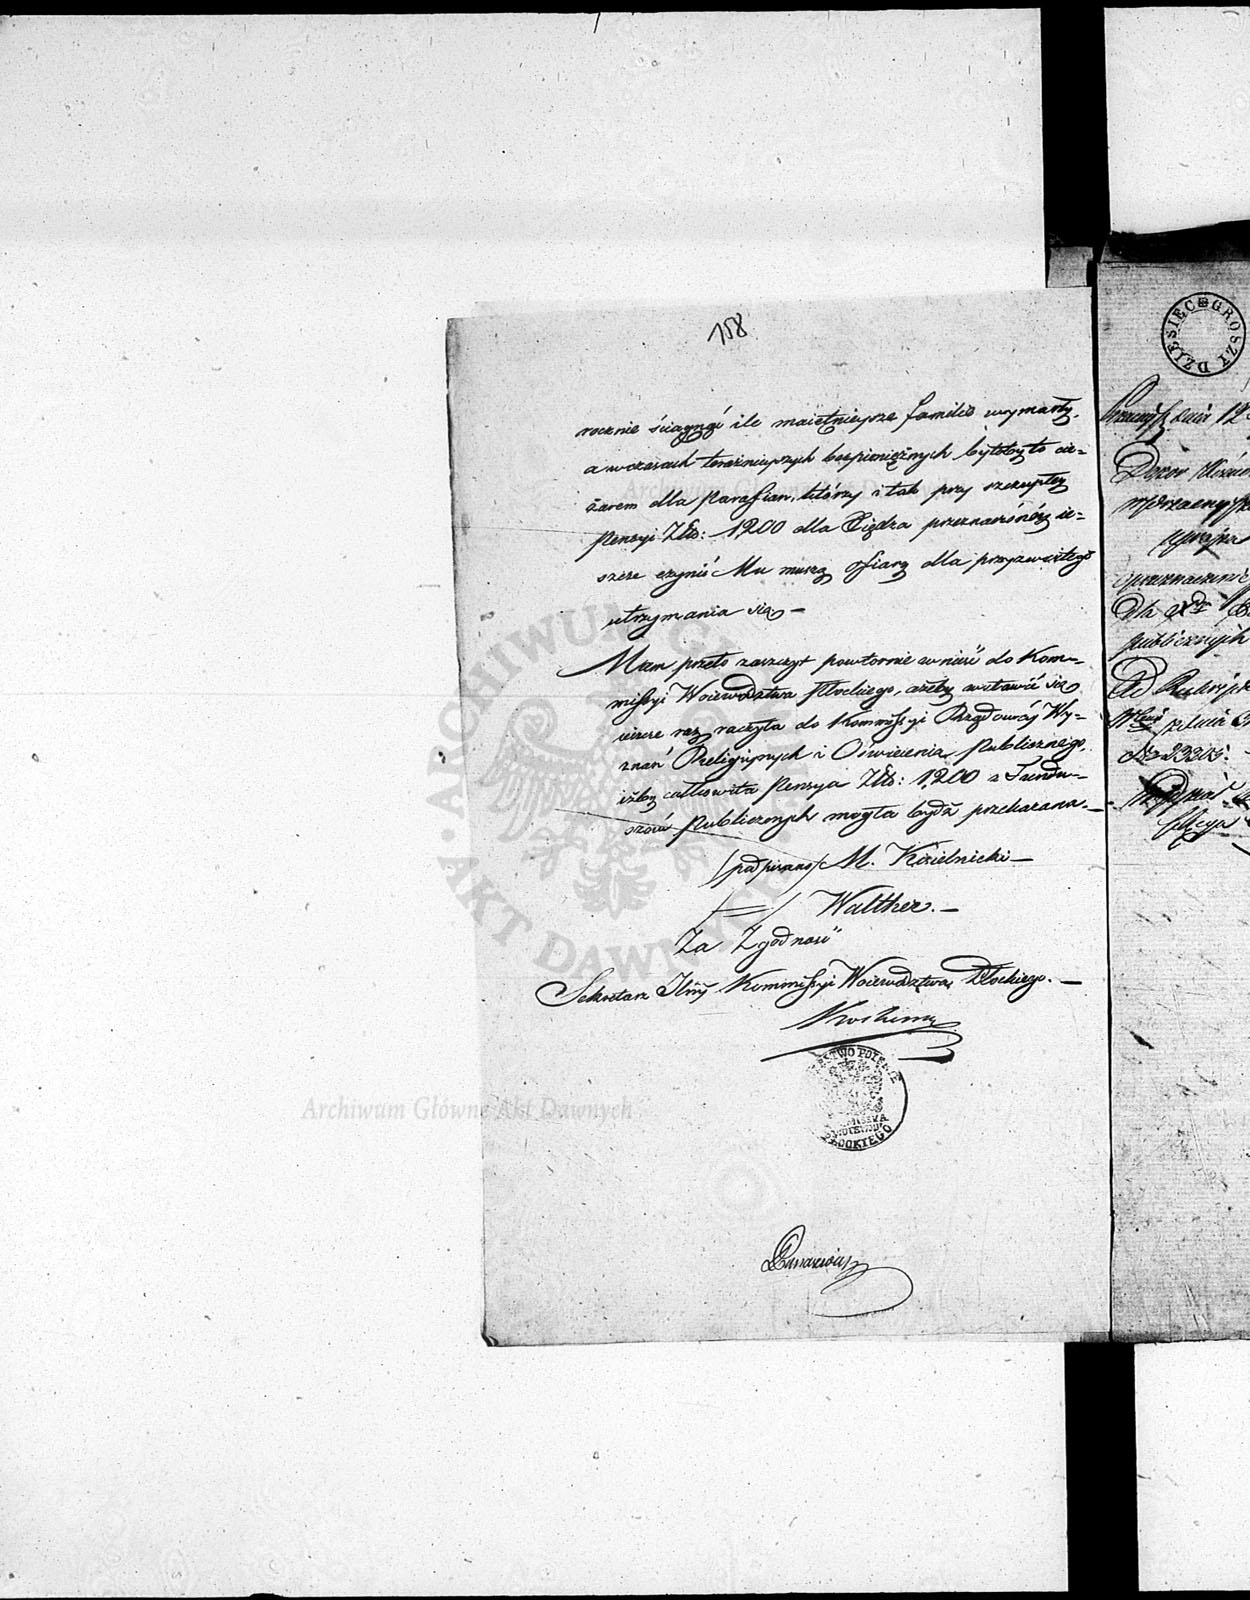 158
rocznie ściągnąć ile maiętnieysze familie wymarły,
a w czasach teraźnieyszych bezpieniężnych byłoby to cię-
żarem dla Parafian, którzy i tak przy szczupłey
Pensyi Złto: 1200 dla Xiędza przeznaczonéy ie-
szcze czynić Mu muszą ofiarę dla przyzwoitego
utrzymania się. –
Mam przeto zaszczyt powtornie wnieść do Kom-
missyi Woiewództwa Płockiego, ażeby wstawić się
ieszcze raz raczyła do Kommissyi Rządowéy Wy-
znań Religiynych i Oświecenia Publicznego,
iżby całkowita Pensya Złto: 1200 z Fundu-
szów Publicznych mogła bydź przekazana. –
/podpisano/ M. Kisielnicki –
/ = / Walther. –
Za Zgodność
Sekretarz Jlny Kommissyi Woiewództwa Płockiego. –
POLSKIE
PŁOCKIEGO
DZIESIĘĆ GROSZY
dnia 12
Dozor
publicznych
dnia
No 23305:
ARCHIWUM GŁÓWNE AKT DAWNYCH
Archiwum Główne Akt Dawnych